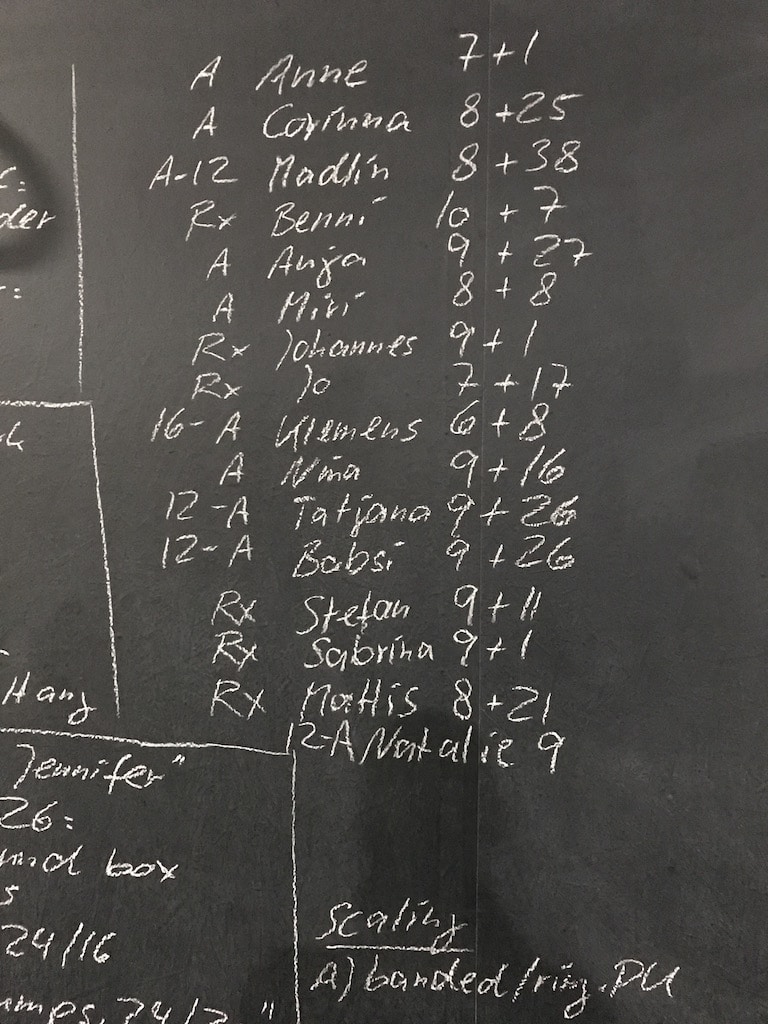 A Anne 7+1
A Corinna 8+25
A-12 Madlin 8+38
Rx Benni 10+7
A Anja 9+27
A Miri 8+8
Rx Johannes 9+1
Rx Jo 7+17
16-A Klemens 6+8
A Nina 9+16
12-A Tatjana 9+26
12-A Babsi 9+26
Rx Stefan 9+11
Rx Sabrina 9+1
Rx Mattis 8+21
12-A Natalie 9
Hang
Jennifer"
26:
box
24/16
Scaling
A) banded/ring.PU